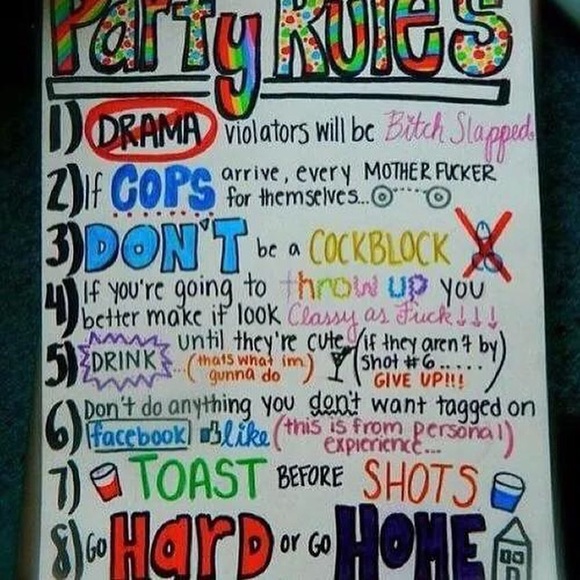 Party Rules
1) DRAMA violators will be Bitch Slapped
2) If COPS arrive, every MOTHER FUCKER
for themselves...
3) DON'T be a COCKBLOCK
4) If you're going to throw up you
better make it look Classy as Fuck!!!
5) DRINK until they're cute (if they aren't by
...(thats what im shot #6.....
gunna do) GIVE UP!!!)
6) Don't do anything you don't want tagged on
facebook like (this is from personal
expierience...)
7) TOAST BEFORE SHOTS
8) Go HARD or GO HOME